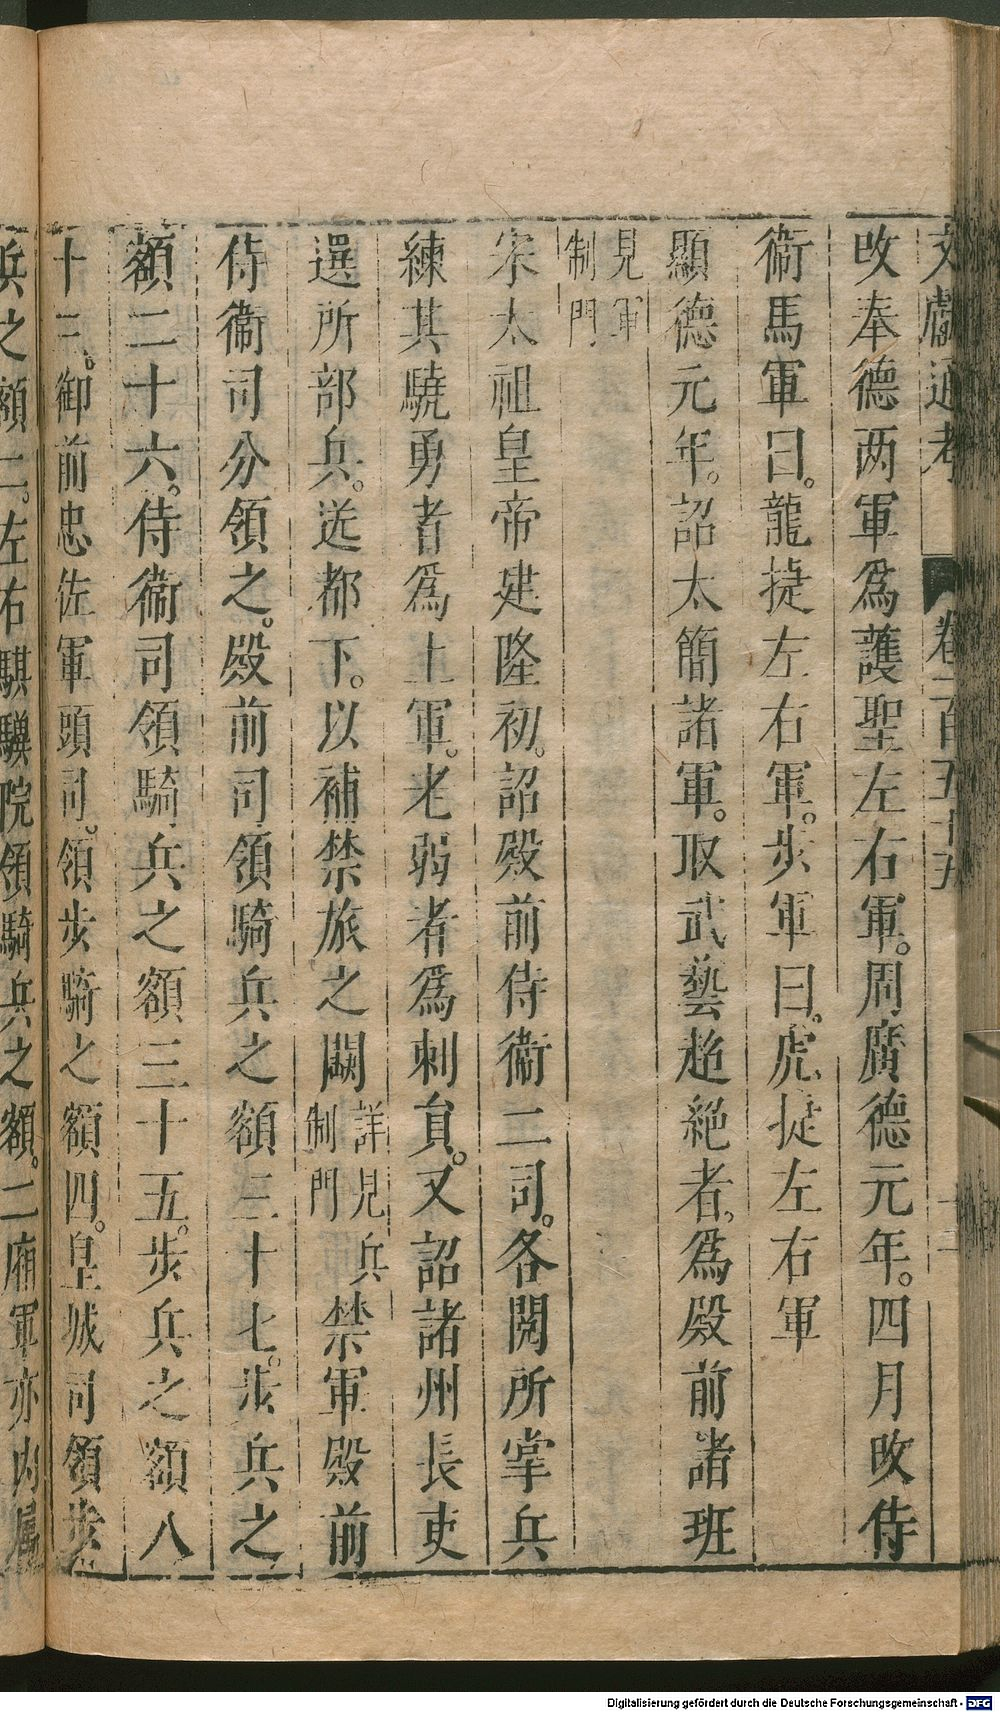 文獻通考 卷一百五十五
改奉德两軍爲護聖左右軍。周廣德元年。四月改侍
衞馬軍曰。龍㨗左右軍。步軍曰。虎㨗左右軍
顯德元年。詔太簡諸軍。取武藝趫絶者。爲殿前諸班
見軍
制門
宋太祖皇帝建隆初。詔殿前侍衞二司。各閱所掌兵
練其驍勇者爲上軍。老弱者爲剌員。又詔諸州長吏
選所部兵。送都下。以補禁旅之闕 詳見兵制門 禁軍殿前
侍衞司分領之。殿前司領騎兵之額三十七。步兵之
額二十六。侍衞司領騎兵之額三十五。步兵之額八
十三。御前忠佐軍頭司。領步騎之額四。皇城司領步
兵之額二。左右騏驥院領騎兵之額。二廂軍亦内屬
Digitalisierung gefördert durch die Deutsche Forschungsgemeinschaft - DFG